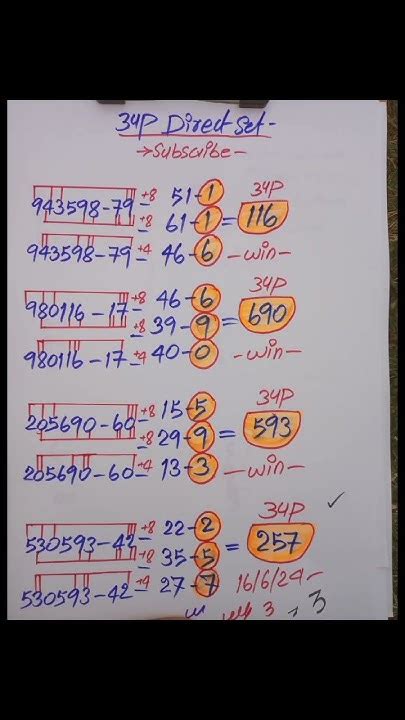 3UP Direct Set-
→Subscribe-
943598-79 +8 = 51-1 3UP
+8 = 61-1 = 116
943598-79 +4 = 46-6 -win-
980116-17 +8 = 46-6 3UP
+8 = 39-9 = 690
980116-17 +4 = 40-0 -win-
205690-60 +8 = 15-5 3UP
+8 = 29-9 = 593
205690-60 +4 = 13-3 -win-
530593-42 +8 = 22-2 3UP ✓
+8 = 35-5 = 257
530593-42 +4 = 27-7 16/6/24-
3 3